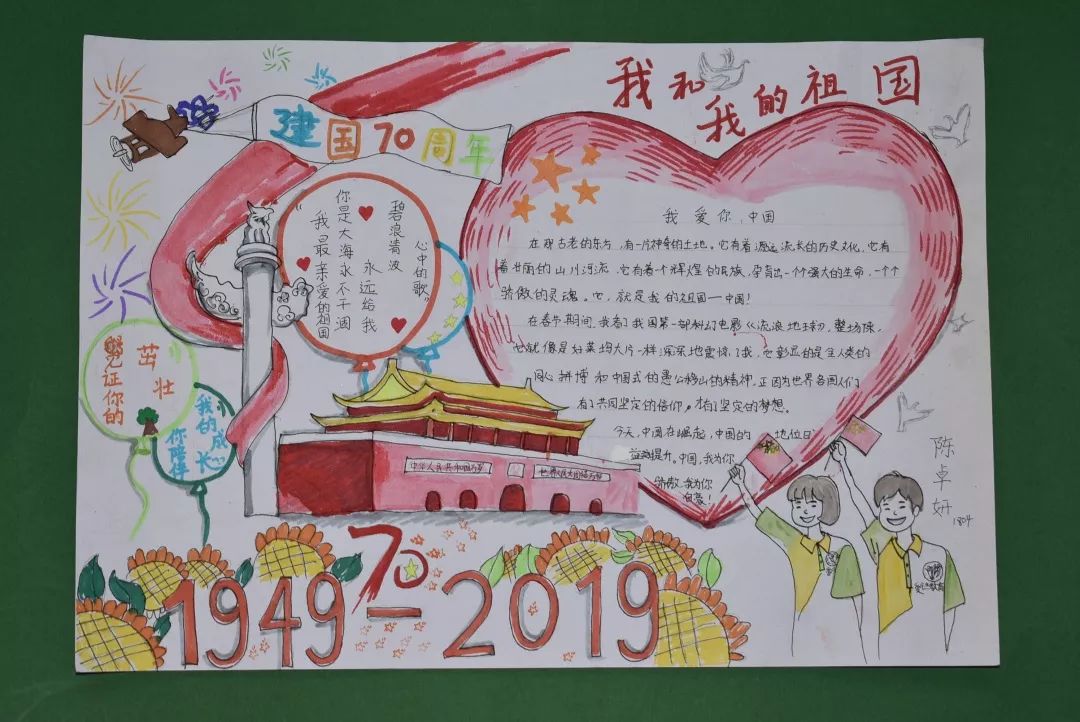 我和我的祖国
建国70周年
心中的歌。
碧浪清波
永远给我
你是大海永不干涸
"我最亲爱的祖国
我爱你,中国
在那古老的东方,有一片神奇的土地。它有着源远流长的历史文化,它有
着壮丽的山川河流,它有着一个辉煌的民族,孕育出一个个强大的生命,一个个
骄傲的灵魂。它,就是我的祖国—中国!
在春节期间,我看了我国第一部科幻电影《流浪地球》,整场球,
它就像是好莱坞大片一样深深地震惊了我,它彰显的是全人类的
同心拼博和中国式的愚公移山的精神,正因为世界各国人们
有了共同坚定的信仰,才有了坚定的梦想。
今天,中国在崛起,中国的地位日
益提升。中国,我为你
骄傲,我为你
自豪!
茁壮
见证你的
我的成长
你陪伴
中华人民共和国万岁
世界人民大团结万岁
陈卓妍
1804
70
1949-2019